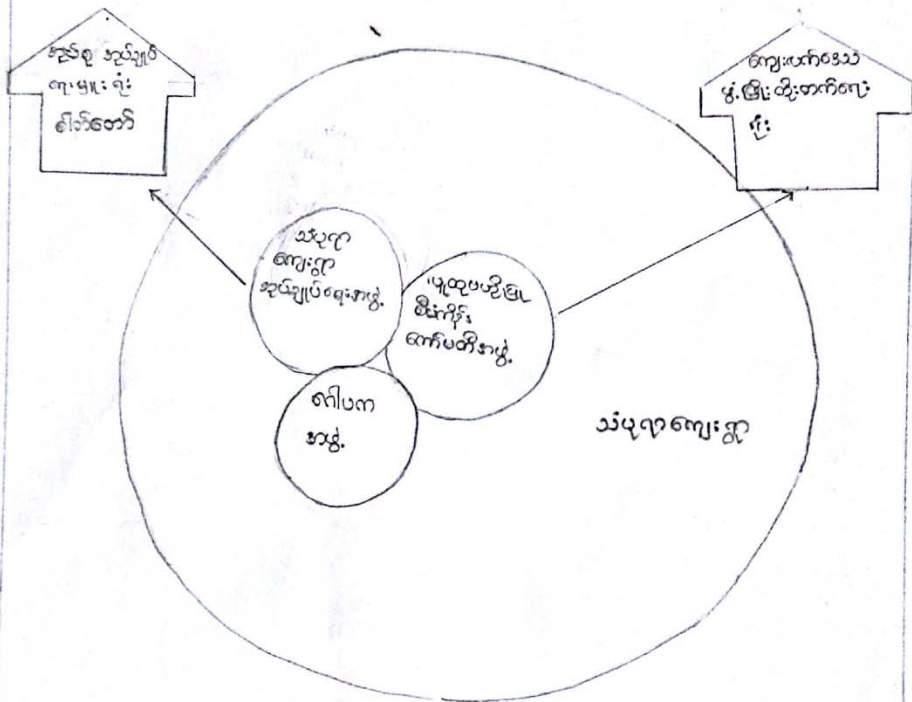 အုပ်စု အုပ်ချုပ်
ရေးမှူး ရုံး
ဓါတ်တော်
ကျေးလက်ဒေသ
ဖွံ့ဖြိုး တိုးတက်ရေး
ရုံး
သံပုရာ
ကျေးရွာ
အုပ်ချုပ်ရေးအဖွဲ့
ပြု
စီမံကိန်း
ကော်မတီအဖွဲ့
အဖွဲ့
သံပုရာကျေးရွာ